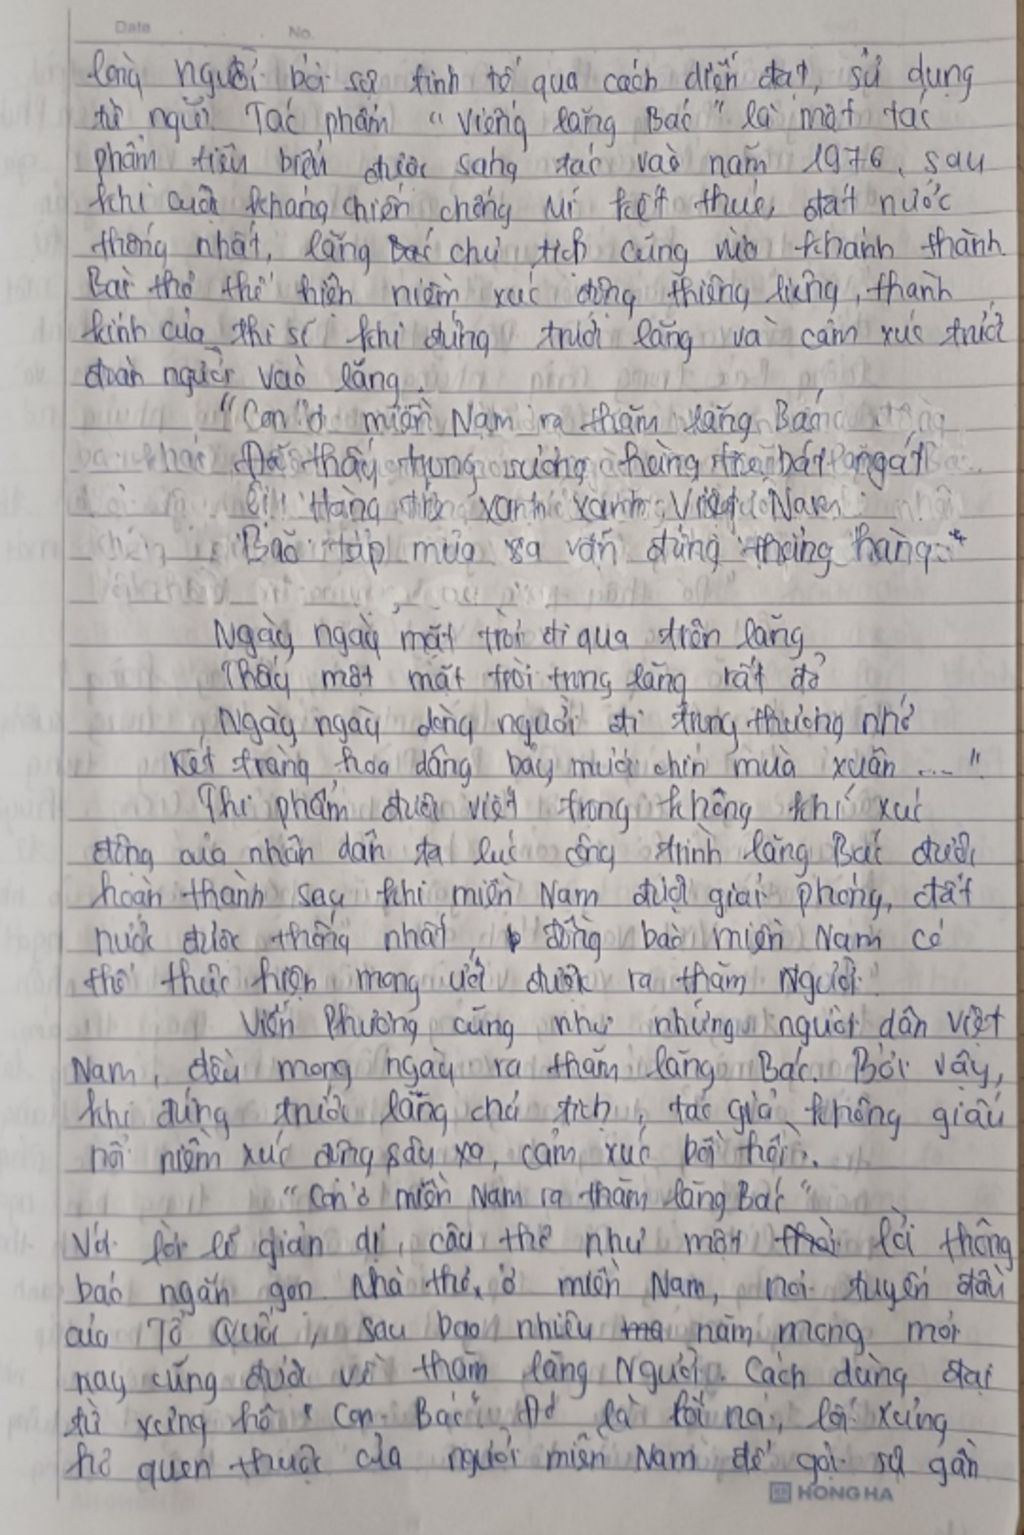 Date No.
lòng người bởi sự tinh tế qua cách diễn đạt, sử dụng
từ ngữ. Tác phẩm "Viếng lăng Bác" là một tác
phẩm tiêu biểu được sáng tác vào năm 1976, sau
khi cuộc kháng chiến chống Mĩ kết thúc, đất nước
thống nhất, lăng Bác chủ tịch cũng vừa khánh thành.
Bài thơ thể hiện niềm xúc động thiêng liêng, thành
kính của thi sĩ khi đứng trước lăng và cảm xúc trước
đoàn người vào lăng.
"Con ở miền Nam ra thăm lăng Bác
Đã thấy trong sương hàng tre bát ngát
Ôi! Hàng tre xanh xanh Việt Nam
Bão táp mưa sa vẫn đứng thẳng hàng."
Ngày ngày mặt trời đi qua trên lăng
Thấy một mặt trời trong lăng rất đỏ
Ngày ngày dòng người đi trong thương nhớ
Kết tràng hoa dâng bảy mươi chín mùa xuân ...."
Thi phẩm được viết trong không khí xúc
động của nhân dân ta lúc công trình lăng Bác được
hoàn thành sau khi miền Nam được giải phóng, đất
nước được thống nhất, đồng bào miền Nam có
thể thực hiện mong ước được ra thăm Người.
Viễn Phương cũng như những người dân Việt
Nam, đều mong ngày ra thăm lăng Bác. Bởi vậy,
khi đứng trước lăng chủ tịch, tác giả không giấu
nổi niềm xúc động sâu xa, cảm xúc bồi hồi.
"Con ở miền Nam ra thăm lăng Bác"
Với lời lẽ giản dị, câu thơ như một lời thông
báo ngắn gọn. Nhà thơ ở miền Nam, nơi tuyến đầu
của Tổ Quốc, sau bao nhiêu năm mong mỏi
nay cũng được về thăm lăng Người. Cách dùng đại
từ xưng hô "Con - Bác". Đó là lối nói, lối xưng
hô quen thuộc của người miền Nam để gợi sự gần
HONG HA